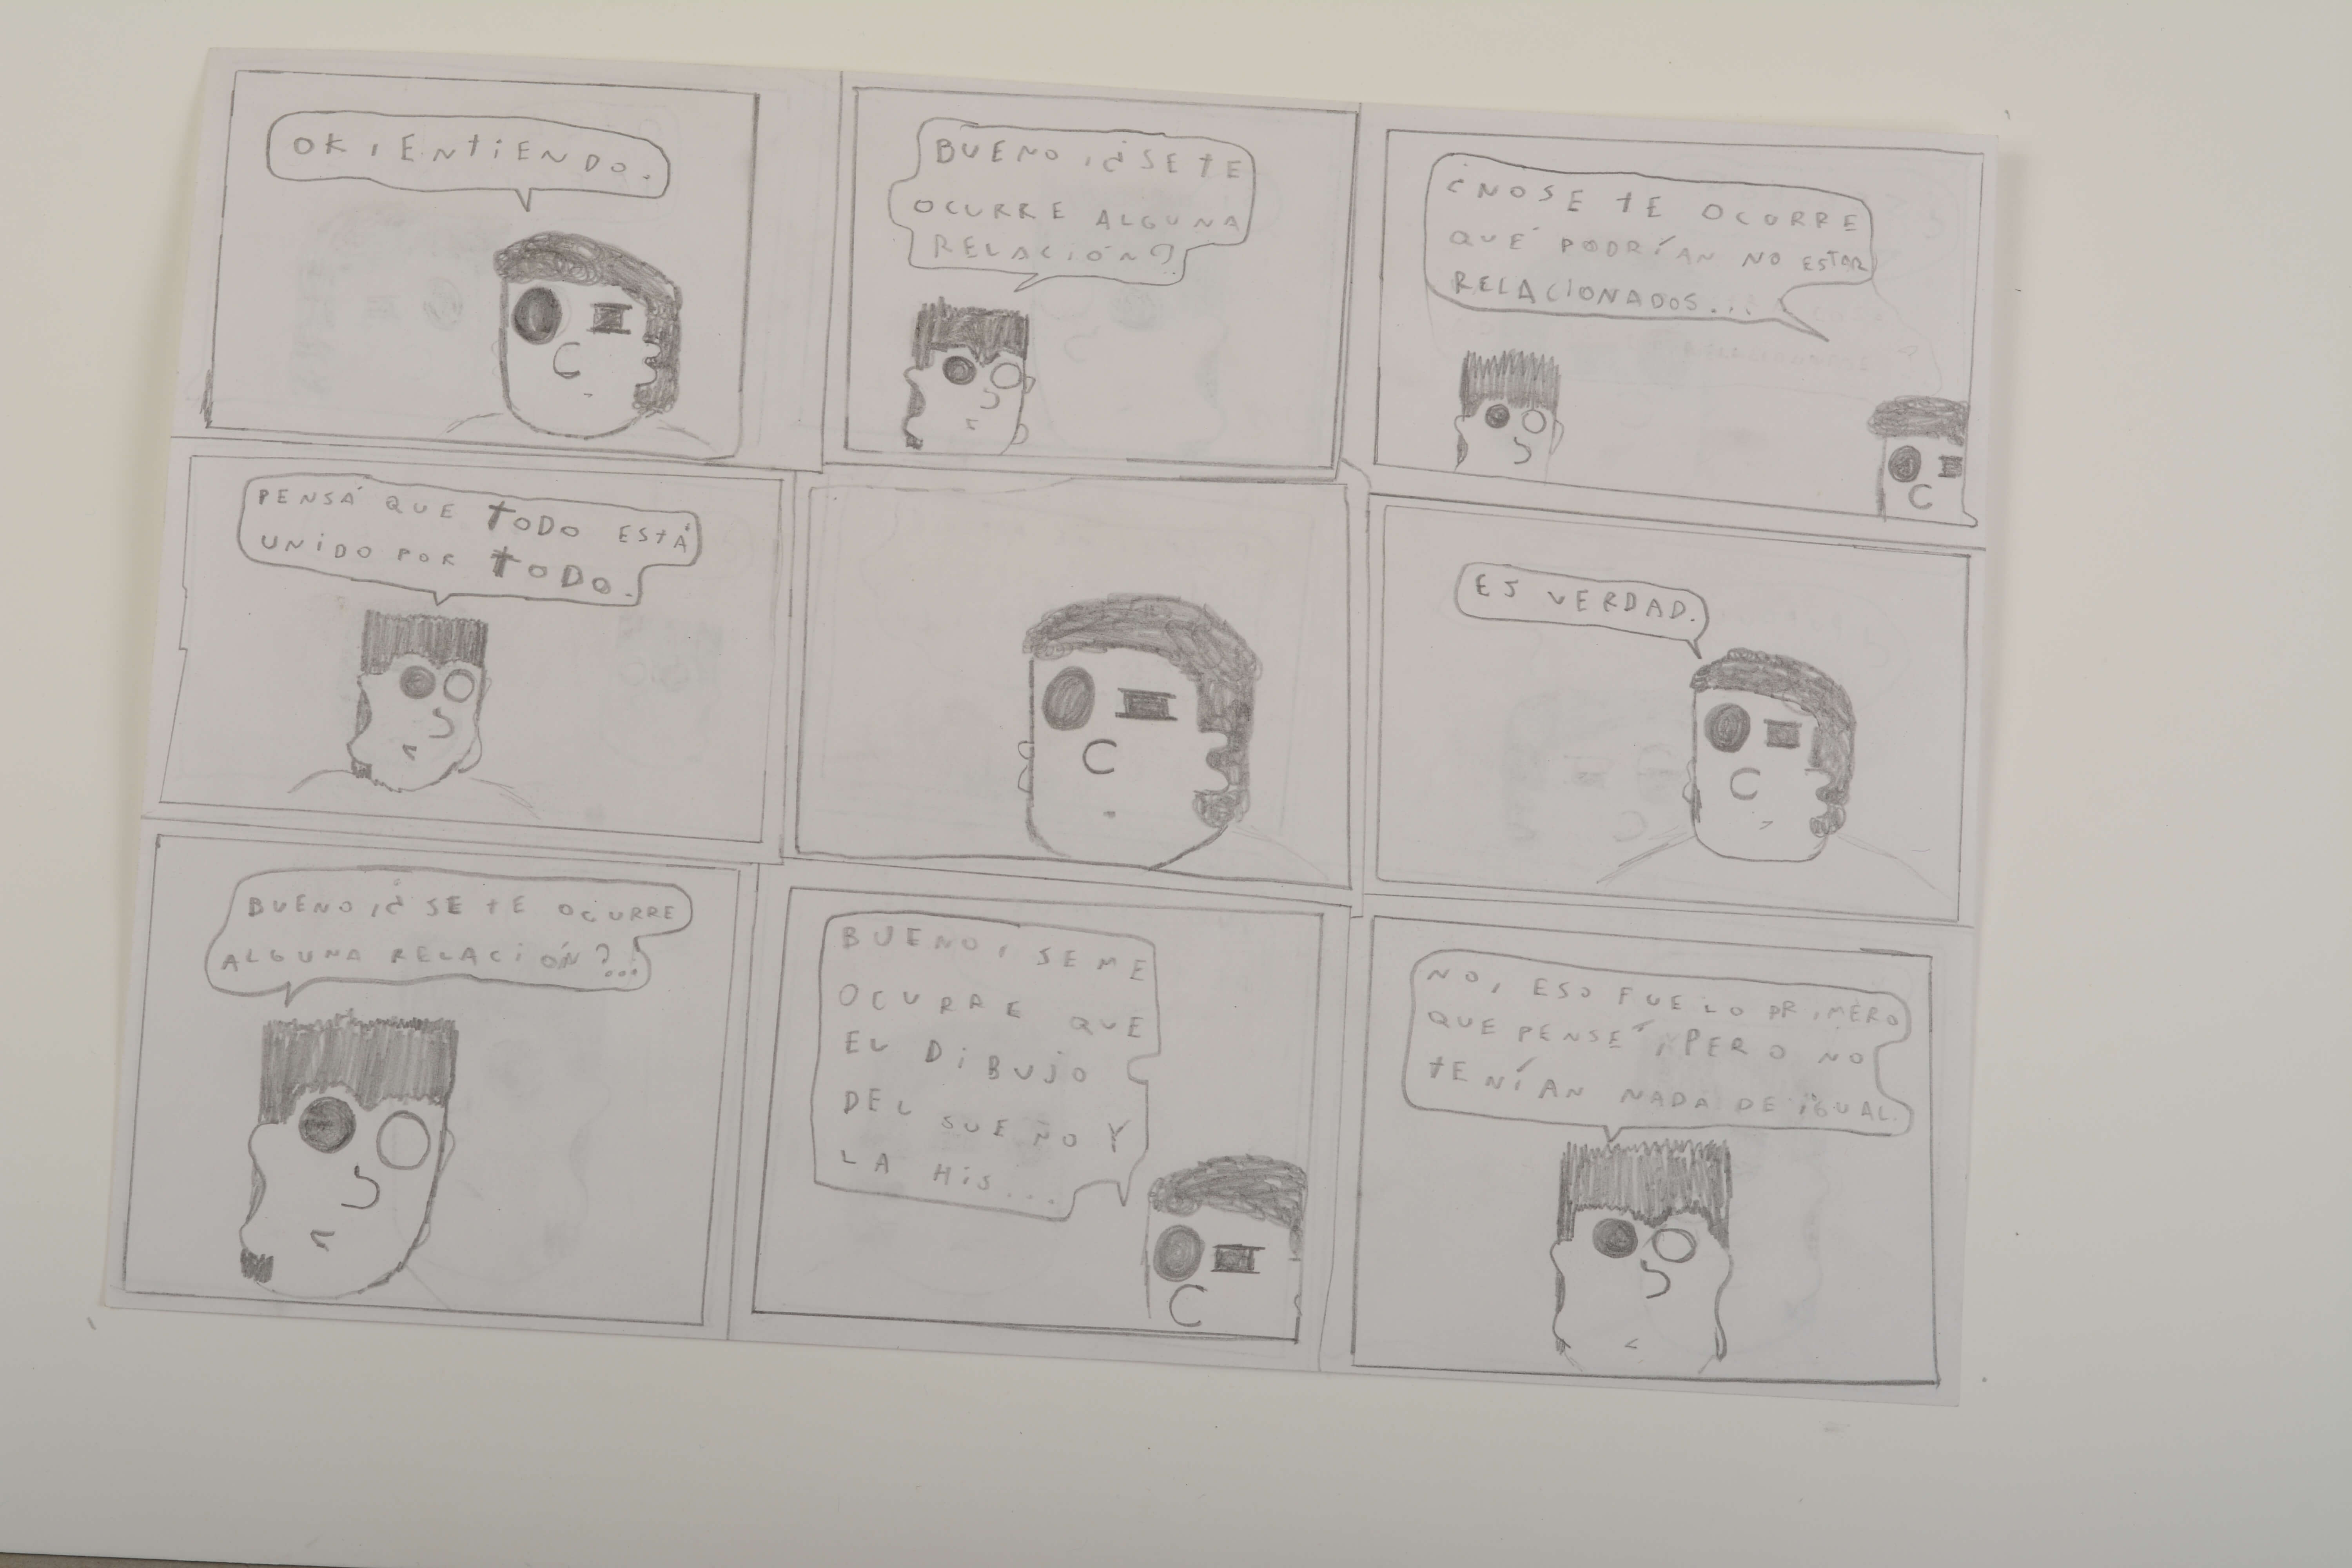 OK, ENTIENDO.
BUENO, ¿SE TE
OCURRE ALGUNA
RELACIÓN?
¿NO SE TE OCURRE
QUÉ PODRÍAN NO ESTAR
RELACIONADOS...
PENSÁ QUE TODO ESTÁ
UNIDO POR TODO.
ES VERDAD.
BUENO, ¿SE TE OCURRE
ALGUNA RELACIÓN?...
BUENO, SE ME
OCURRE QUE
EL DIBUJO
DEL SUEÑO Y
LA HIS...
NO, ESO FUE LO PRIMERO
QUE PENSÉ, PERO NO
TENÍAN NADA DE IGUAL.